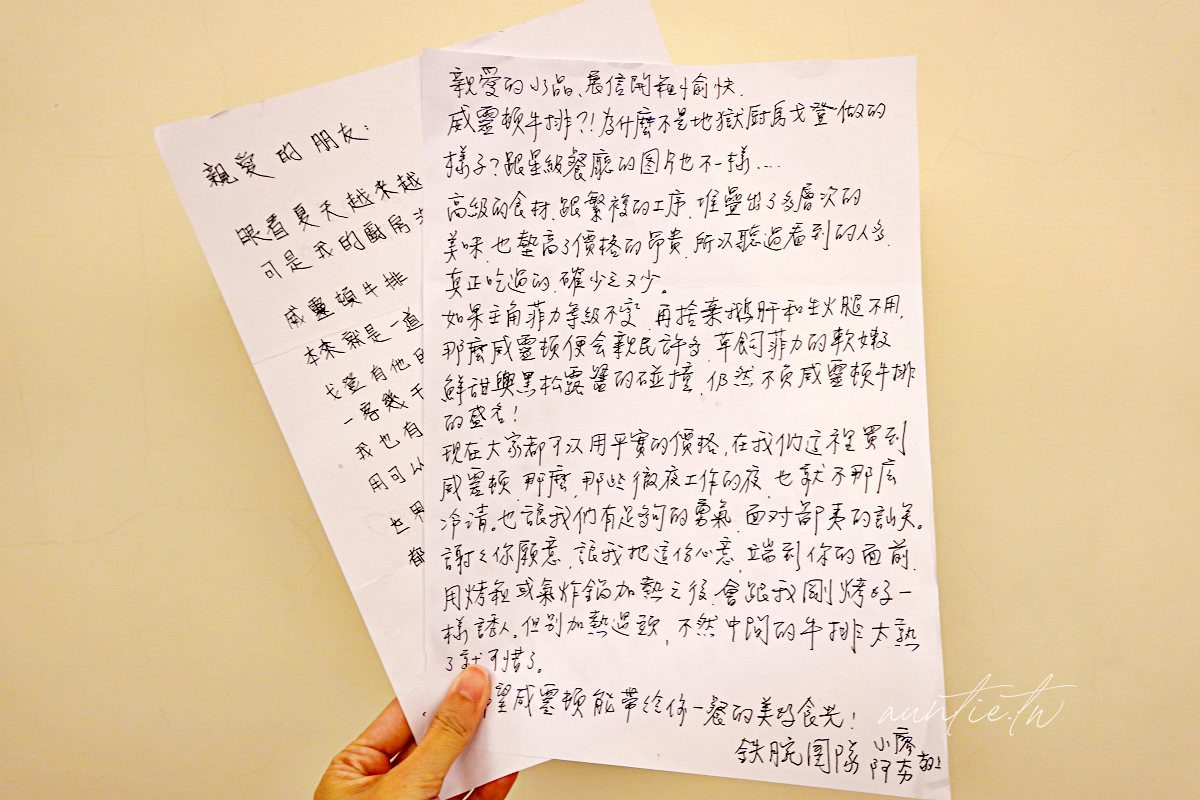 親愛的朋友：
眼看夏天越來越
可是我的廚房
威靈頓牛排
本來就是一道
戈登有他
一客幾千
我也有
用可以
世界
都
親愛的小品、展信開箱愉快.
威靈頓牛排?!為什麼不是地獄厨房戈登做的
樣子?跟星級餐廳的图片也不一樣....
高級的食材.跟繁複的工序.堆疊出了多層次的
美味.也墊高了價格的昂貴.所以聽過看到的人多.
真正吃過的.確少之又少。
如果主角菲力等級不变.再捨棄鵝肝和生火腿不用,
那麼威靈頓便会親民許多.草飼菲力的軟嫩
鮮甜與黑松露醬的碰撞.仍然不負威靈頓牛排
的盛名!
現在大家都可以用平實的價格,在我們這裡買到
威靈頓.那麼,那些徹夜工作的夜.也就不那麼
冷清。也讓我們有足夠的勇氣.面对鄙夷的訕笑。
謝々你願意.讓我把這份心意.端到你的面前.
用烤箱或氣炸鍋加熱之後.會跟我剛烤好一
樣誘人.但別加熱過頭,不然中間的牛排太熟
了就可惜了。
望威靈頓能帶給你一餐的美好食光!
鉄腕團隊 小廖
阿夯 敬上
auntie.tw